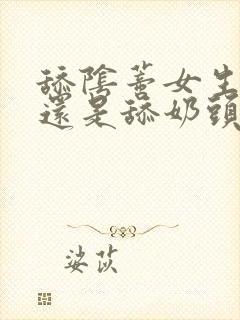 舔陰蒂女生
還是舔奶頭
娑茨